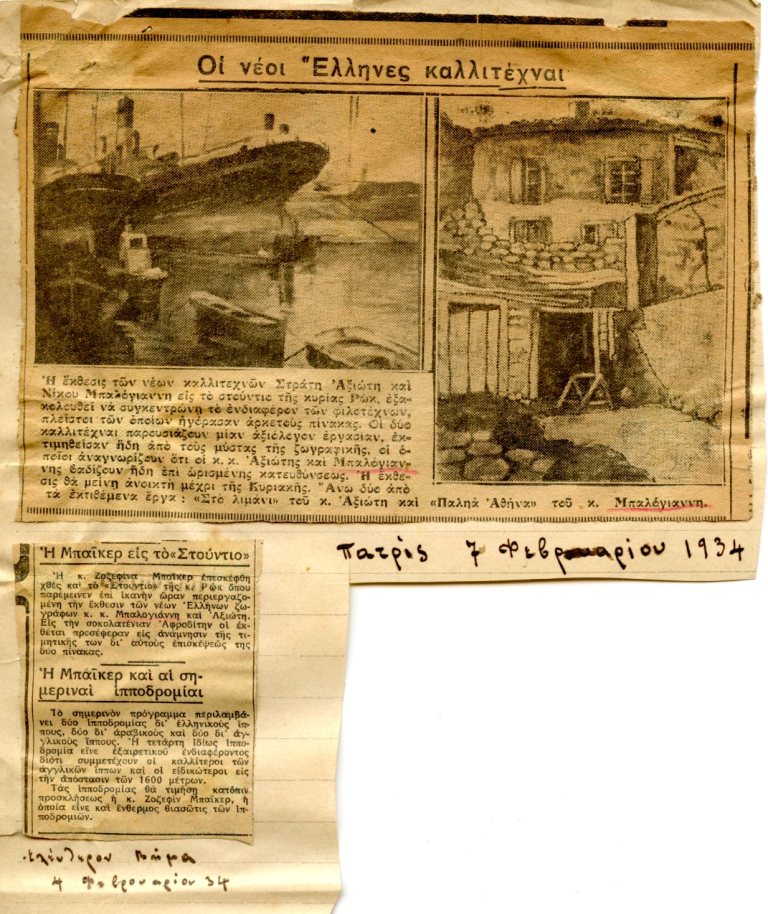 Οἱ νέοι Ἕλληνες καλλιτέχναι
Ἡ ἔκθεσις τῶν νέων καλλιτεχνῶν Στράτη Ἀξιώτη καὶ
Νίκου Μπαλόγιαννη εἰς τὸ στούντιο τῆς κυρίας Ρὼκ, ἐξα-
κολουθεῖ νὰ συγκεντρώνη τὸ ἐνδιαφέρον τῶν φιλοτέχνων,
πλεῖστοι τῶν ὁποίων ἠγόρασαν ἀρκετοὺς πίνακας. Οἱ δύο
καλλιτέχναι παρουσιάζουν μίαν ἀξιόλογον ἐργασίαν, ἐκ-
τιμηθεῖσαν ἤδη ἀπὸ τοὺς μύστας τῆς ζωγραφικῆς, οἱ ὁ-
ποῖοι ἀναγνωρίζουν ὅτι οἱ κ. κ. Ἀξιώτης καὶ Μπαλόγιαν-
νης βαδίζουν ἤδη ἐπὶ ὡρισμένης κατευθύνσεως. Ἡ ἔκθε-
σις θὰ μείνη ἀνοικτὴ μέχρι τῆς Κυριακῆς. Ἄνω δύο ἀπὸ
τὰ ἐκτιθέμενα ἔργα : «Στὸ λιμάνι» τοῦ κ. Ἀξιώτη καὶ «Παληὰ Ἀθήνα» τοῦ κ. Μπαλόγιαννη.
Πατρίς 7 Φεβρουαρίου 1934
Ἡ Μπαῖκερ εἰς τὸ «Στούντιο»
Ἡ κ. Ζοζεφίνα Μπαῖκερ ἐπεσκέφθη
χθὲς καὶ τὸ «Στούντιο» τῆς κ. Ρὼκ ὅπου
παρέμεινεν ἐπὶ ἱκανὴν ὥραν περιεργαζο-
μένη τὴν ἔκθεσιν τῶν νέων Ἑλλήνων ζω-
γράφων κ. κ. Μπαλογιάννη καὶ Ἀξιώτη.
Εἰς τὴν σοκολατένιαν Ἀφροδίτην οἱ ἐκ-
θέται προσέφεραν εἰς ἀνάμνησιν τῆς τι-
μητικῆς των δι' αὐτοὺς ἐπισκέψεώς της
δύο πίνακας.
Ἡ Μπαῖκερ καὶ αἱ ση-
μεριναὶ ἱπποδρομίαι
Τὸ σημερινὸν πρόγραμμα περιλαμβά-
νει δύο ἱπποδρομίας δι' ἑλληνικοὺς ἵπ-
πους, δύο δι' ἀραβικοὺς καὶ δύο δι' ἀγ-
γλικοὺς ἵππους. Ἡ τετάρτη ἰδίως ἱππο-
δρομία εἶνε ἐξαιρετικοῦ ἐνδιαφέροντος
διότι συμμετέχουν οἱ καλλίτεροι τῶν
ἀγγλικῶν ἵππων καὶ οἱ εἰδικώτεροι εἰς
τὴν ἀπόστασιν τῶν 1600 μέτρων.
Τὰς ἱπποδρομίας θὰ τιμήση κατόπιν
προσκλήσεως ἡ κ. Ζοζεφὶν Μπαῖκερ, ἡ
ὁποία εἶνε καὶ ἔνθερμος θιασῶτις τῶν ἱπ-
ποδρομιῶν.
Ελεύθερον Βήμα
4 Φεβρουαρίου 34